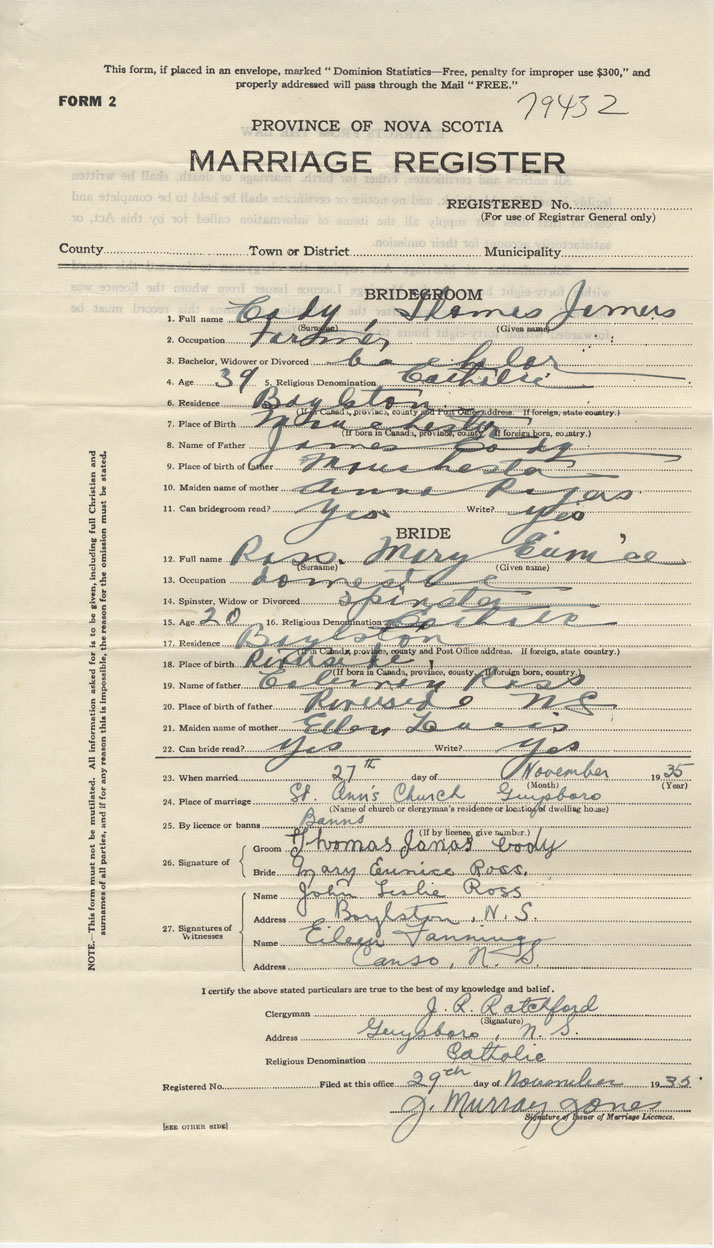 This form, if placed in an envelope, marked "Dominion Statistics—Free, penalty for improper use $300," and
properly addressed will pass through the Mail "FREE."
FORM 2
79432
PROVINCE OF NOVA SCOTIA
MARRIAGE REGISTER
REGISTERED No.
(For use of Registrar General only)
County Town or District Municipality
BRIDEGROOM
1. Full name Cody, Thomas James
(Surname) (Given name)
2. Occupation Farmer
3. Bachelor, Widower or Divorced bachelor
4. Age 39 5. Religious Denomination Catholic
6. Residence Boylston
(If in Canada, province, county and Post Office address. If foreign, state country.)
7. Place of Birth Manchester
(If born in Canada, province, county. If foreign born, country.)
8. Name of Father James Cody
9. Place of birth of father Manchester
10. Maiden name of mother Anna Rogers
11. Can bridegroom read? Yes Write? Yes
BRIDE
12. Full name Ross. Mary Eunice
(Surname) (Given name)
13. Occupation domestic
14. Spinster, Widow or Divorced spinster
15. Age 20 16. Religious Denomination Catholic
17. Residence Boylston
(If in Canada, province, county and Post Office address. If foreign, state country.)
18. Place of birth Riverside
(If born in Canada, province, county. If foreign born, country.)
19. Name of father Ross
20. Place of birth of father Riverside NS
21. Maiden name of mother Ellen
22. Can bride read? Yes Write? Yes
23. When married 27th day of November 1935
(Month) (Year)
24. Place of marriage St. Ann's Church Guysboro
(Name of church or clergyman's residence or location of dwelling house)
25. By licence or banns Banns
(If by licence, give number.)
26. Signature of Groom Thomas James Cody
Bride Mary Eunice Ross.
27. Signatures of Witnesses
Name John Leslie Ross
Address Boylston, N.S.
Name Eileen Fanning
Address Canso, N.S.
I certify the above stated particulars are true to the best of my knowledge and belief.
Clergyman J. R. Ratchford
(Signature)
Address Guysboro, N.S.
Religious Denomination Catholic
Registered No. Filed at this office 29th day of November 1935.
J. Murray Jones
Signature of Issuer of Marriage Licences.
[SEE OTHER SIDE]
NOTE.—This form must not be mutilated. All information asked for is to be given, including full Christian and
surnames of all parties, and if for any reason this is impossible, the reason for the omission must be stated.